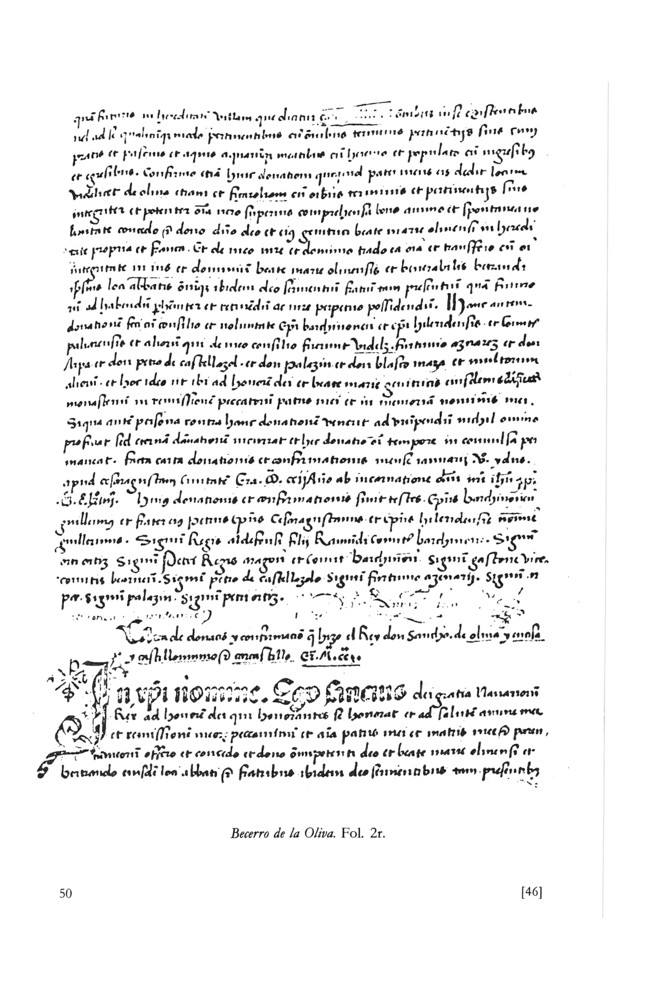 quā futuris in hereditatē villam que dicitur omībus in se existentibus
vel ad se qualicūq; modo pertinentibus cū ōnibus terminis pertinētijs suis cum
pratis et pascuis et aquis aquarūq; meatibus cū heremo et populato cū ingresibus
et egresibus. Confirmo etiā huic donationi quicquid pater meus eis dedit locum
videlicet de oliva etiam et ficarolam cū oībus terminis et pertinentijs suis
integriter et potenter oīa vero superius comprehensa bono animo et spontanea vo
luntate concedo et dono dīno deo et eiꝰ genitrici beate marie olivensi in heredi
tate propria et franca. Et de meo iure et dominio trado ea oīa et transfero cū oī
integritate in ius et dominiū beate marie olivensis et venerabilis bertrandi
ipsius loci abbatis ōniūq; ibidem deo servientiū fratrū tam presentiū quā futuro
rū ad habendū et retinēdū ac iure perpetuo possidendū. Hanc autem
donationē feci cū consilio et voluntate ēpi barchinonēn et ēpi hileridensis et Comitē
paliarensis et aliorū qui de meo consilio fuerunt videlz. furtunio aznarez et don
Arpa et don petro de castellozol. et don palazin et don blasco maza et multorum
aliorū. et hoc ideo ut ibi ad honorē dei et beate marie genitricis eiusdem
monasteriū in remissionē peccatorū patris mei et in memoriā nominis mei.
Siqua autē persona contra hanc donationē venerit ad nichil omino
proficiat sed eternā dānationē incurrat et hec donatio oī tempore in convulsa per
maneat. facta carta donationis et confirmationis mense ianuarij ydus.
apud cesaragustam civitatē Era. M. ccij Año ab incarnatione dn̄i nr̄i
Huius donationis et confirmationis sunt testes. Ep̄us barchinonēn
guillemus et frater eiꝰ petrus ep̄us Cesaragustanus et ep̄us hilerdensis nōmine
guillermus. Signū Regis aldefonsi filij Raimūdi comitē barchinon. Signū
orti ortiz Signū petri Regis aragon̄ et comit barchinōn. Signū gastone vice
comitis bearnen̄. Signū petro de castellozolo Signū fortunio azenarij. Signū
pa. Signū palazin. Signū petri ortiz.
de donaciō y confirmaciō q̄ hizo el Rey don Sancho. de oliva y encisa
y castillonmunio et carcastillo. Er. M. cc.
In xp̄i nomine. Ego sancius dei gratia Navarrorū
Rex ad honorē dei qui honorantes se honorat et ad salutē anime mee
et remissionē meorꝝ peccaminū et aīa patris mei et matris mee et paren,
tum meorū offero et concedo et dono ōnipotenti deo et beate marie olivensi et
bertrando eiusdē loci abbati et fratribus ibidem deo servientibus tam presentibꝰ
Becerro de la Oliva. Fol. 2r.
50 [46]